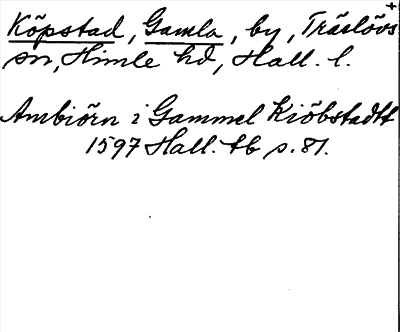 Köpstad, Gamla, by, Träslövs +
sn, Himle hd, Hall. l.
Ambiörn i Gammel Kiöbstadtt
1597 Hall. tb s. 81.